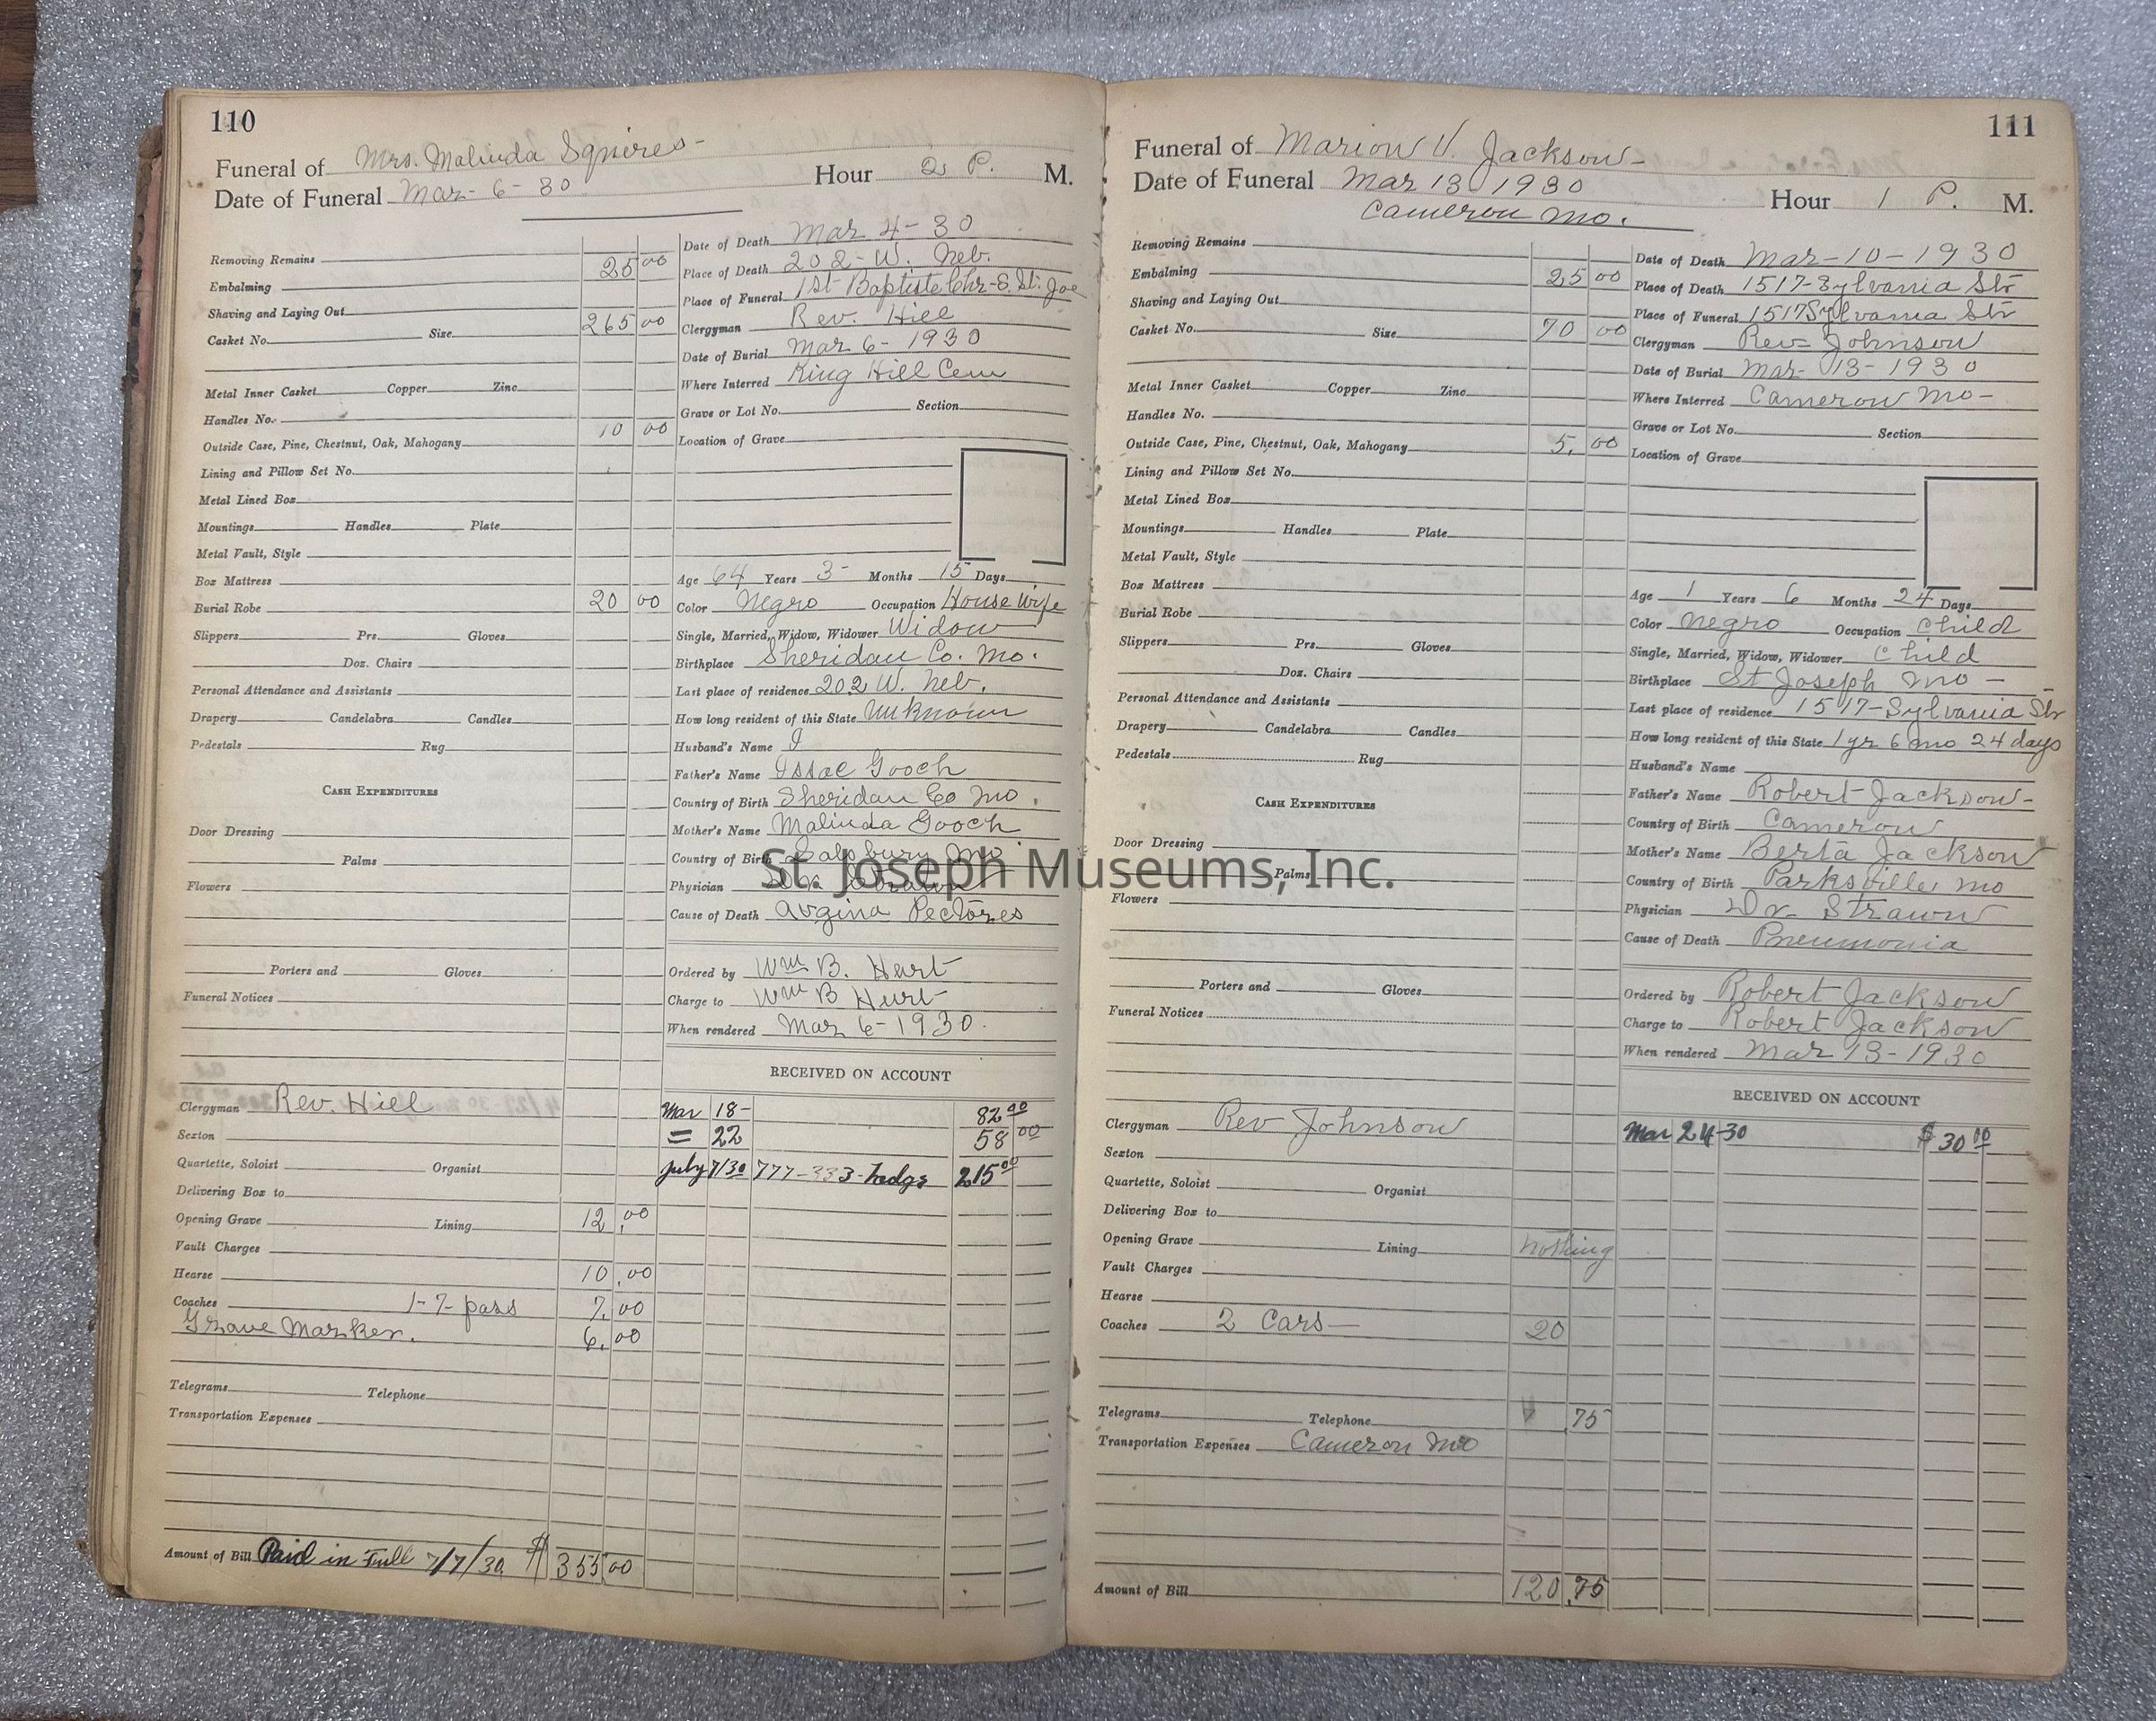 110
Funeral of Mrs. Malinda Squires-
Date of Funeral Mar-6-30 Hour 2 P. M.
Removing Remains
Embalming 25 00
Shaving and Laying Out
Casket No. Size 265 00
Metal Inner Casket Copper Zinc
Handles No.
Outside Case, Pine, Chestnut, Oak, Mahogany 10 00
Lining and Pillow Set No.
Metal Lined Box
Mountings Handles Plate
Metal Vault, Style
Box Mattress
Burial Robe 20 00
Slippers Prs. Gloves
Doz. Chairs
Personal Attendance and Assistants
Drapery Candelabra Candles
Pedestals Rug
CASH EXPENDITURES
Door Dressing
Palms
Flowers
Porters and Gloves
Funeral Notices
Clergyman Rev. Hill
Sexton
Quartette, Soloist Organist
Delivering Box to
Opening Grave Lining 12.00
Vault Charges
Hearse 10.00
Coaches 1-7-pass 7.00
Grave Marker. 6.00
Telegrams Telephone
Transportation Expenses
Amount of Bill Paid in Full 7/7/30. $ 355 00
Date of Death Mar 4-30
Place of Death 202-W. Neb.
Place of Funeral 1st Baptiste Chr-S. St. Joe
Clergyman Rev. Hill
Date of Burial Mar 6-1930
Where Interred King Hill Cem
Grave or Lot No. Section
Location of Grave
Age 64 Years 3- Months 15 Days
Color Negro Occupation House Wife
Single, Married, Widow, Widower Widow
Birthplace Sheridan Co. Mo.
Last place of residence 202 W. Neb.
How long resident of this State Unknown
Husband's Name
Father's Name Issac Gooch
Country of Birth Sheridan Co Mo.
Mother's Name Malinda Gooch
Country of Birth Mo
Physician
Cause of Death Avgina Pectores
Ordered by Wm B. Hurt
Charge to Wm B Hurt
When rendered Mar 6-1930.
RECEIVED ON ACCOUNT
Mar 18- 82 00
= 22 58 00
July 7/30 777-333-hedge 215 00
111
Funeral of Marion V. Jackson-
Date of Funeral Mar 13 1930 Hour 1 P. M.
Cameron Mo.
Removing Remains
Embalming 25 00
Shaving and Laying Out
Casket No. Size 70 00
Metal Inner Casket Copper Zinc
Handles No.
Outside Case, Pine, Chestnut, Oak, Mahogany 5.00
Lining and Pillow Set No.
Metal Lined Box
Mountings Handles Plate
Metal Vault, Style
Box Mattress
Burial Robe
Slippers Prs. Gloves
Doz. Chairs
Personal Attendance and Assistants
Drapery Candelabra Candles
Pedestals Rug
CASH EXPENDITURES
Door Dressing
Palms
Flowers
Porters and Gloves
Funeral Notices
Clergyman Rev Johnson
Sexton
Quartette, Soloist Organist
Delivering Box to
Opening Grave Lining nothing
Vault Charges
Hearse
Coaches 2 Cars- 20
Telegrams Telephone .75
Transportation Expenses Cameron Mo
Amount of Bill 120.75
Date of Death Mar-10-1930
Place of Death 1517-Sylvania Str
Place of Funeral 1517 Sylvania Str
Clergyman Rev- Johnson
Date of Burial Mar-13-1930
Where Interred Cameron Mo-
Grave or Lot No. Section
Location of Grave
Age 1 Years 6 Months 24 Days
Color Negro Occupation Child
Single, Married, Widow, Widower Child
Birthplace St Joseph Mo-
Last place of residence 1517-Sylvania Str
How long resident of this State 1yr 6 mo 24 days
Husband's Name
Father's Name Robert Jackson-
Country of Birth Cameron
Mother's Name Berta Jackson
Country of Birth Parksville Mo
Physician Dr- Strawn
Cause of Death Pneumonia
Ordered by Robert Jackson
Charge to Robert Jackson
When rendered Mar 13-1930
RECEIVED ON ACCOUNT
Mar 24-30 $ 30 00
St. Joseph Museums, Inc.